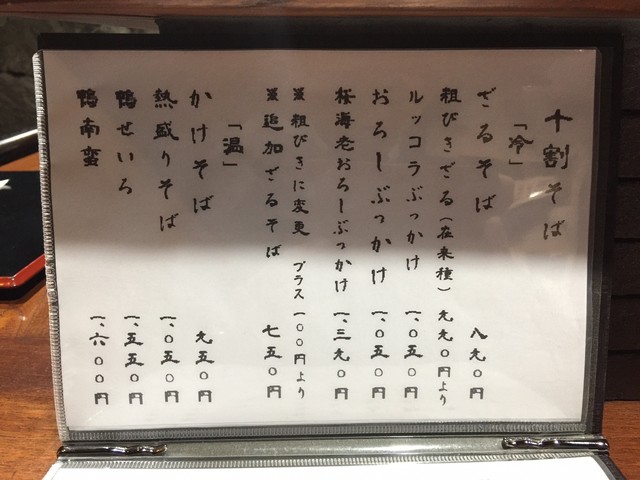 十割そば
「冷」
ざるそば 八九〇円
粗びきざる(在来種) 九九〇円より
ルッコラぶっかけ 一、〇五〇円
おろしぶっかけ 一、〇五〇円
桜海老おろしぶっかけ 一、三九〇円
※粗びきに変更 プラス一〇〇円より
※追加ざるそば 七五〇円
「温」
かけそば 九五〇円
熱盛りそば 一、〇五〇円
鴨せいろ 一、五五〇円
鴨南蛮 一、六〇〇円